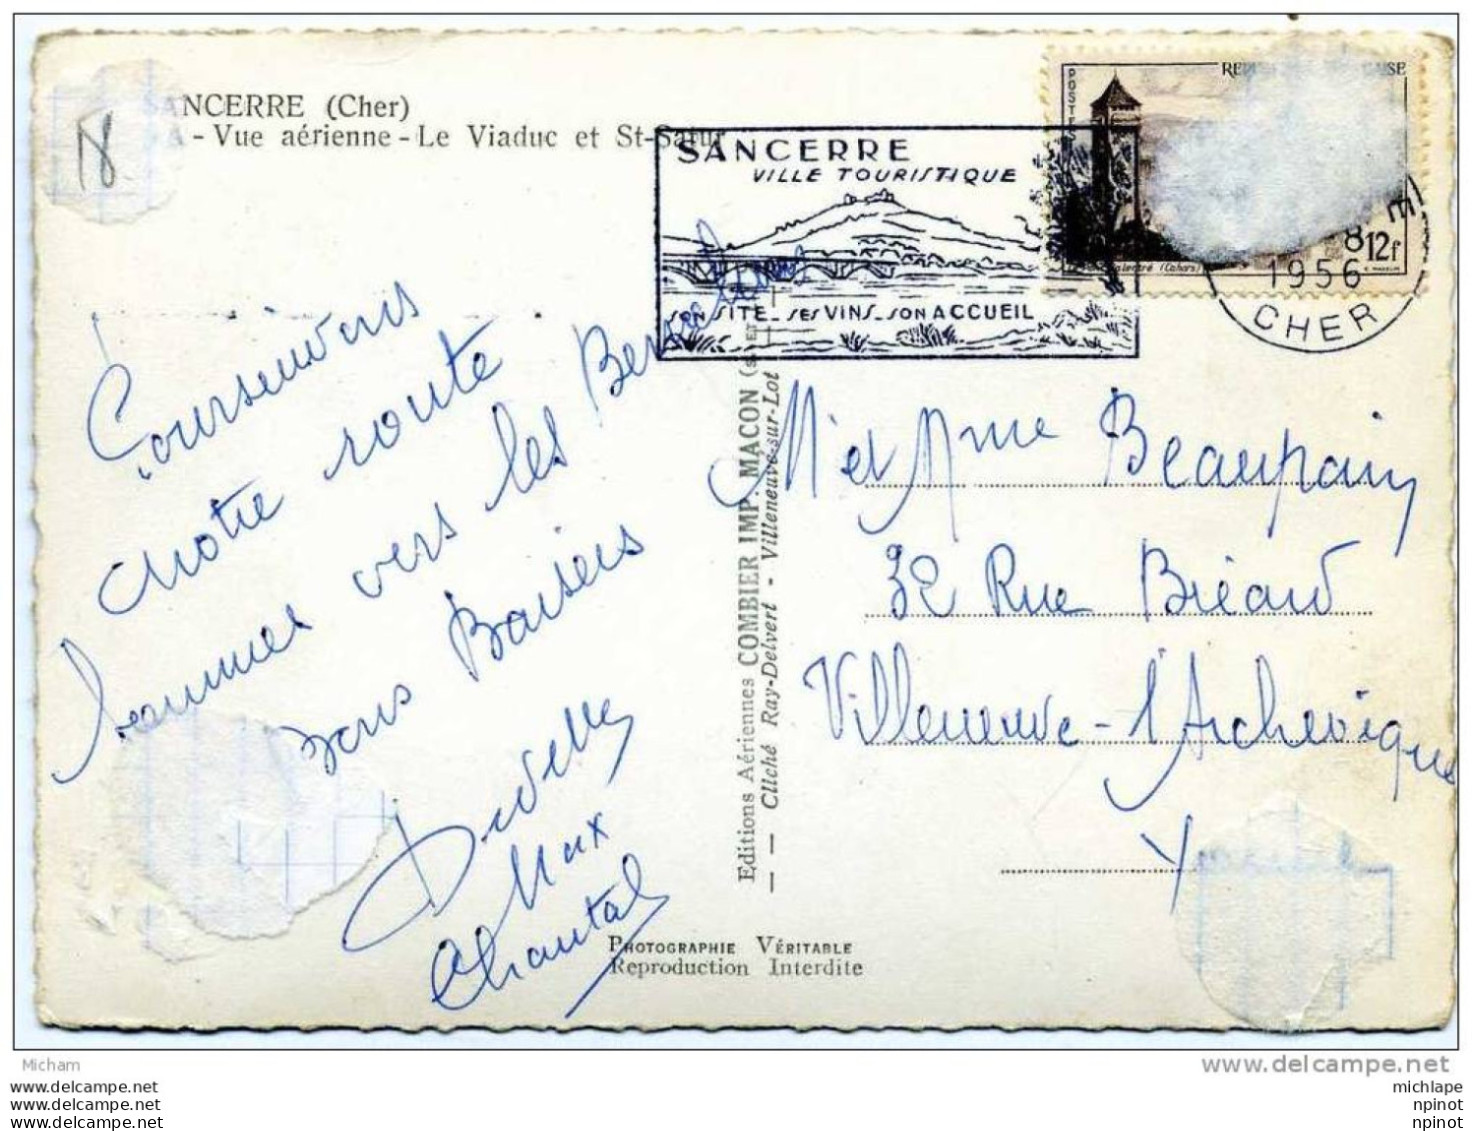 SANCERRE (Cher)
A - Vue aérienne - Le Viaduc et St-Satur
8
SANCERRE
VILLE TOURISTIQUE
SON SITE _ SES VINS _ SON ACCUEIL
POSTES
12f
8
1956
CHER
Poursuivons
notre route
sommes vers les
Bons Baisers
Max
Chantal
Editions Aériennes COMBIER IMP. MACON
— — Cliché Ray-Delvert - Villeneuve-sur-Lot
Mr et Mme Beaupain
32 Rue Bréard
Villeneuve-l'Archevêque
Y
PHOTOGRAPHIE VÉRITABLE
Reproduction Interdite
Micham
www.delcampe.net
www.delcampe.net
www.delcampe.net
www.delcampe.net
michlape
npinot
npinot